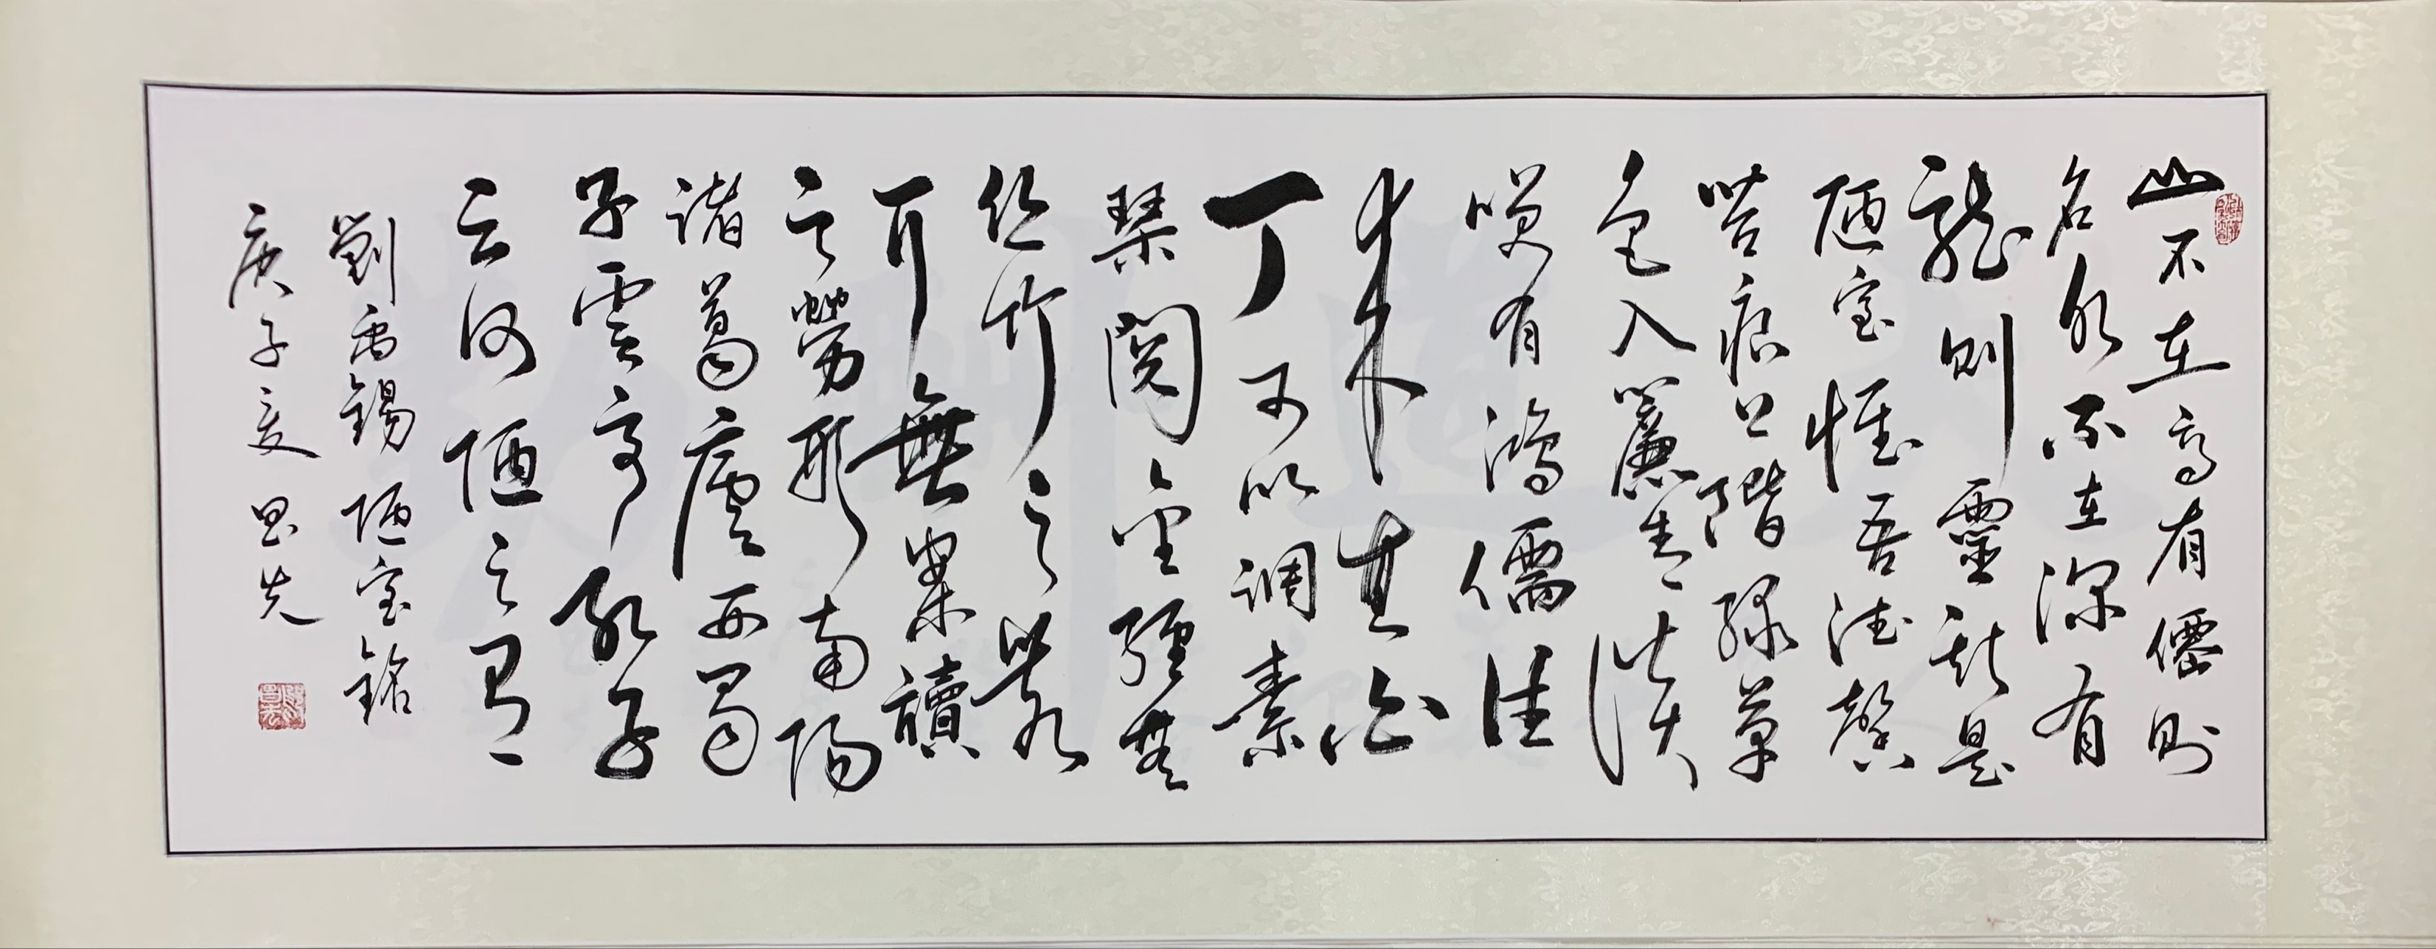 山不在高有僊則
名水不在深有
龍則靈斯是
陋室惟吾德馨
苔痕上階緑草
色入簾青談
笑有鴻儒往
来無白
丁可以調素
琴閱金經無
絲竹之亂
耳無案讀
之勞形南陽
諸葛廬西蜀
子雲亭孔子
云何陋之有
劉禹錫陋室銘
庚子夏